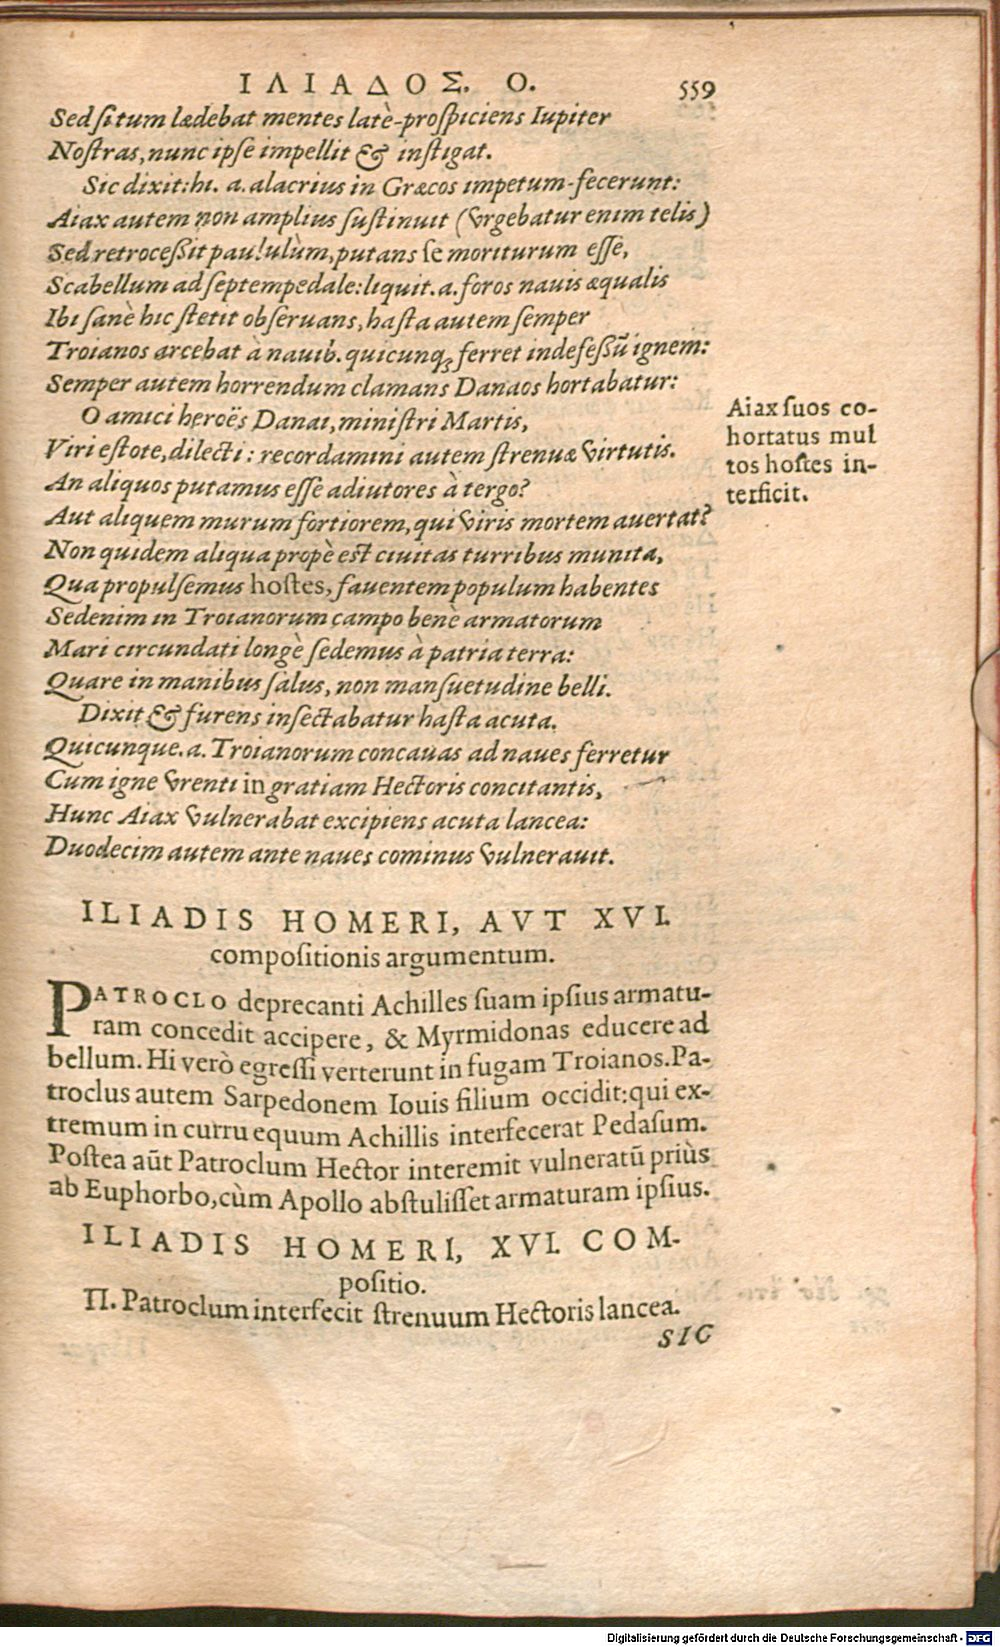 ΙΛΙΑΔΟΣ. Ο. 559
Sed si tum lædebat mentes latè-prospiciens Iupiter
Nostras, nunc ipse impellit & instigat.
Sic dixit: hi. a. alacrius in Græcos impetum-fecerunt:
Aiax autem non amplius sustinuit (vrgebatur enim telis)
Sed retrocessit paululùm, putans se moriturum esse,
Scabellum ad septempedale: liquit. a. foros nauis æqualis
Ibi sanè hic stetit obseruans, hasta autem semper
Troianos arcebat à nauib. quicunq; ferret indefessũ ignem:
Semper autem horrendum clamans Danaos hortabatur:
O amici heroës Danai, ministri Martis,
Viri estote, dilecti: recordamini autem strenuæ virtutis.
An aliquos putamus esse adiutores à tergo?
Aut aliquem murum fortiorem, qui viris mortem auertat?
Non quidem aliqua propè est ciuitas turribus munita,
Qua propulsemus hostes, fauentem populum habentes
Sedenim in Troianorum campo benè armatorum
Mari circundati longè sedemus à patria terra:
Quare in manibus salus, non mansuetudine belli.
Dixit & furens insectabatur hasta acuta.
Quicunque. a. Troianorum concauas ad naues ferretur
Cum igne vrenti in gratiam Hectoris concitantis,
Hunc Aiax vulnerabat excipiens acuta lancea:
Duodecim autem ante naues cominus vulnerauit.
Aiax suos co-
hortatus mul
tos hostes in-
terficit.
ILIADIS HOMERI, AVT XVI.
compositionis argumentum.
PATROCLO deprecanti Achilles suam ipsius armatu-
ram concedit accipere, & Myrmidonas educere ad
bellum. Hi verò egressi verterunt in fugam Troianos. Pa-
troclus autem Sarpedonem Iouis filium occidit: qui ex-
tremum in curru equum Achillis interfecerat Pedasum.
Postea aũt Patroclum Hector interemit vulneratũ priùs
ab Euphorbo, cùm Apollo abstulisset armaturam ipsius.
ILIADIS HOMERI, XVI. COM-
positio.
Π. Patroclum interfecit strenuum Hectoris lancea.
SIC
Digitalisierung gefördert durch die Deutsche Forschungsgemeinschaft - DFG